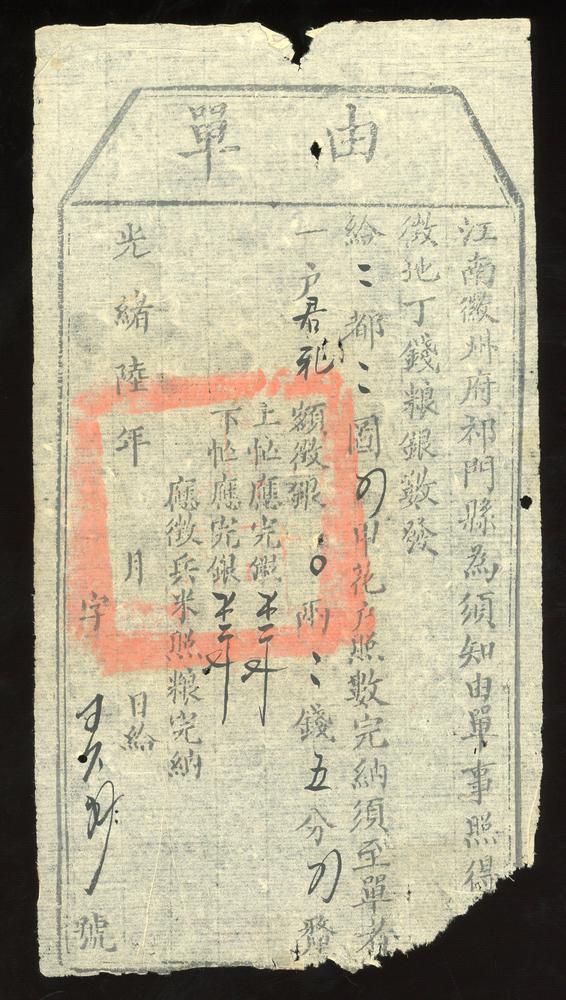 由單
江南徽州府祁門縣為須知由單事照得
徵地丁錢粮銀數發
給二都二圖 甲花戶照數完納須至單者
一户君祀 額徵銀〇兩二錢五分
上忙應完銀
下忙應完銀
應徵兵米照粮完納
光緒陸年 月 日給
字 號